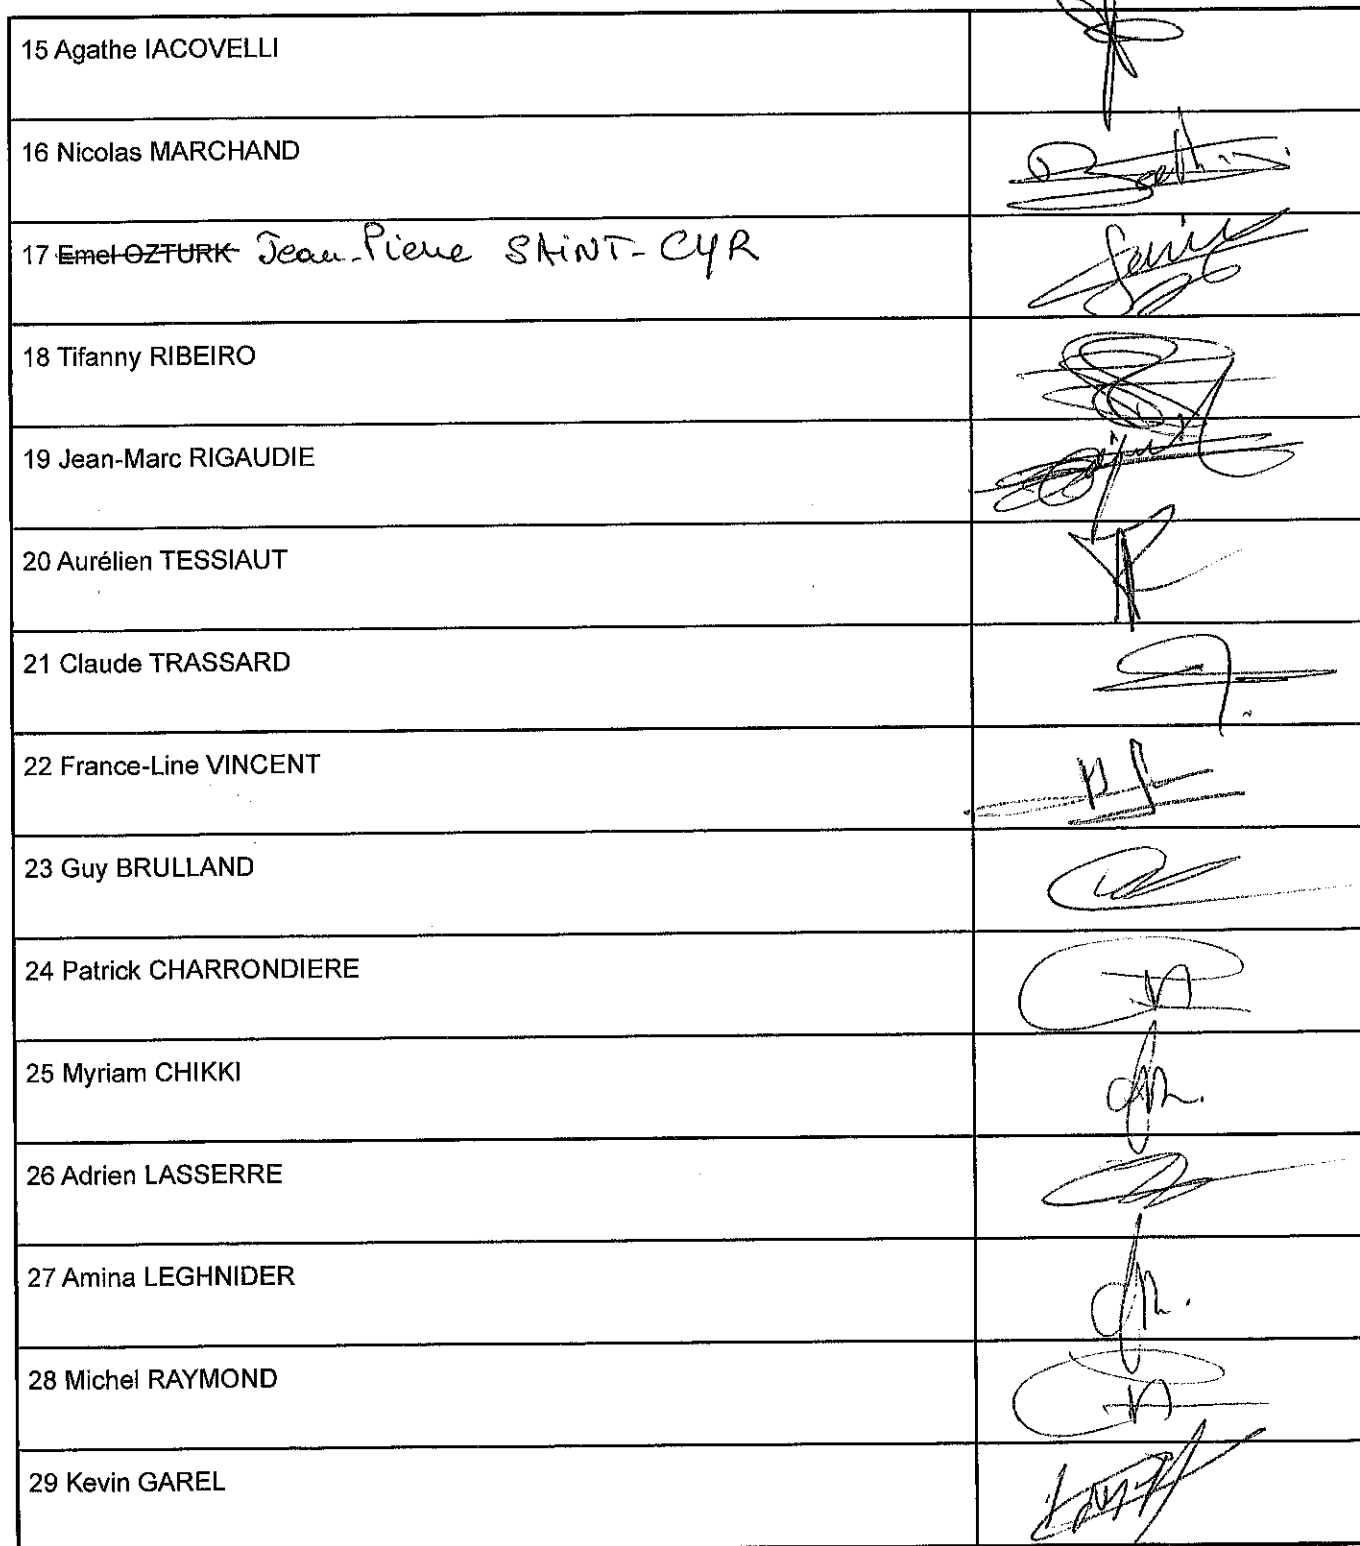 15 Agathe IACOVELLI
16 Nicolas MARCHAND
17 Emel OZTURK Jean-Pierre SAINT-CYR
18 Tifanny RIBEIRO
19 Jean-Marc RIGAUDIE
20 Aurélien TESSIAUT
21 Claude TRASSARD
22 France-Line VINCENT
23 Guy BRULLAND
24 Patrick CHARRONDIERE
25 Myriam CHIKKI
26 Adrien LASSERRE
27 Amina LEGHNIDER
28 Michel RAYMOND
29 Kevin GAREL